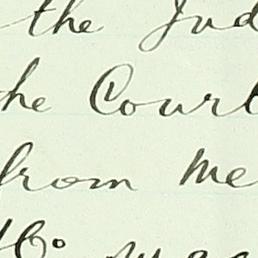 the Jud
the Court
from Me